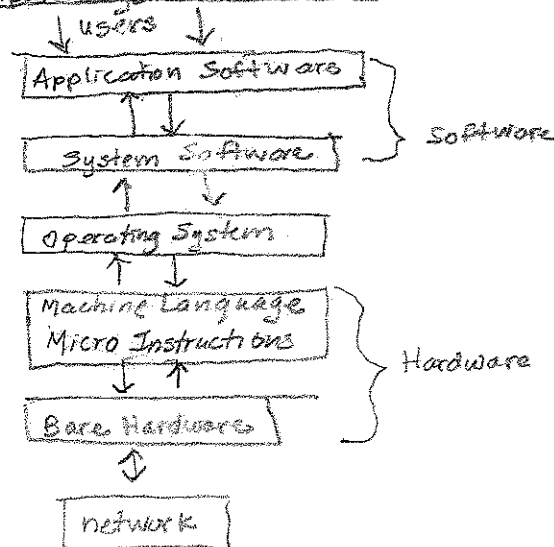 users
Application Software
Software
System Software
Operating System
Machine Language
Micro Instructions
Hardware
Bare Hardware
network